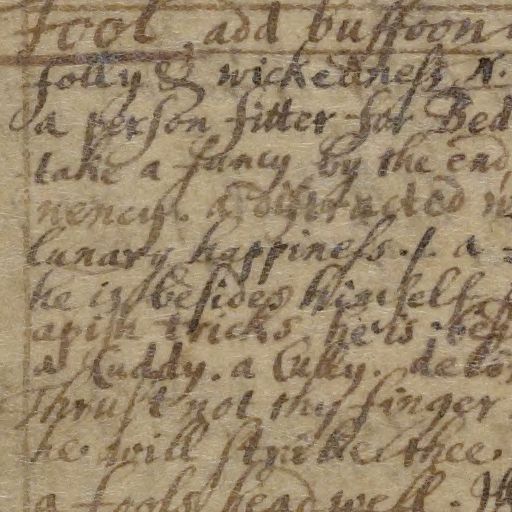 fool add buffoon
folly & wickedness. N.
a person fitter for Bed
take a fancy by the end
nency. a distracted
lunary happiness. /. a
he is besides himself.
apish tricks he is bes
a Cuddy. a Cully.
Thrust not thy finger
he will strike thee.
a fools head well.